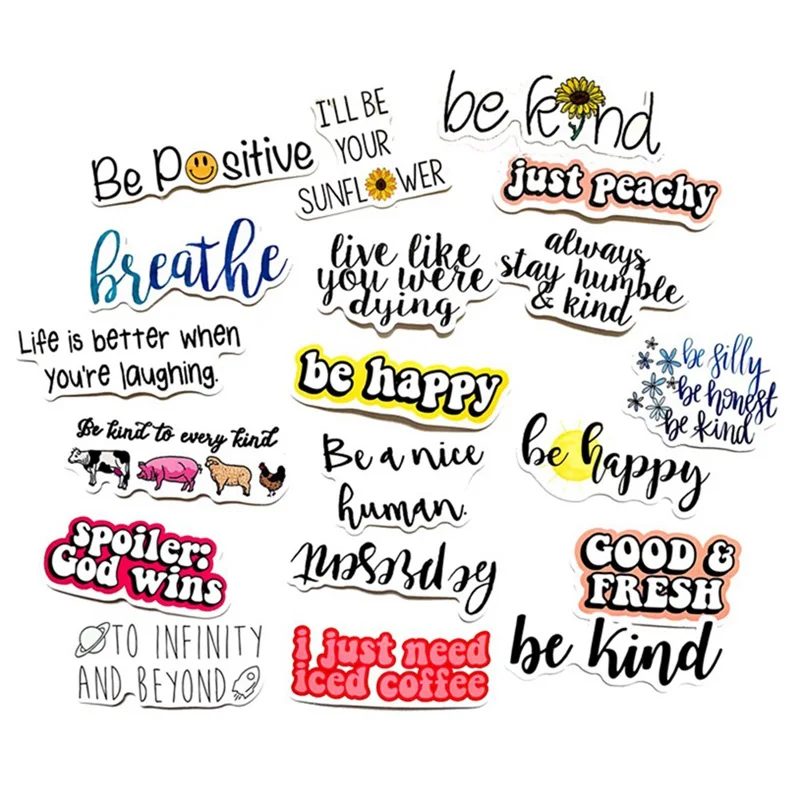 Be Positive
I'LL BE
YOUR
SUNFLOWER
be kind
just peachy
breathe
live like
you were
dying
always
stay humble
& kind
Life is better when
you're laughing.
be happy
be silly
be honest
be kind
Be kind to every kind
Be a nice
human.
be happy
spoiler:
God wins
GOOD &
FRESH
TO INFINITY
AND BEYOND
i just need
iced coffee
be kind